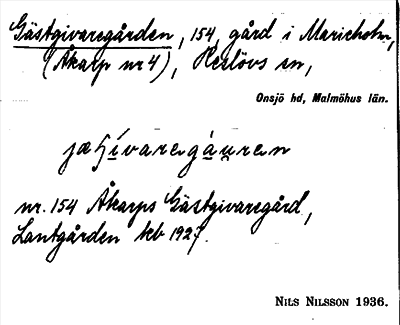 Gästgivaregården, 154, gård i Marieholm,
(Åkarp nr 4), Reslövs sn,
Onsjö hd, Malmöhus län.
nr. 154 Åkarps Gästgivaregård,
Lantgården kb 1927.
NILS NILSSON 1936.